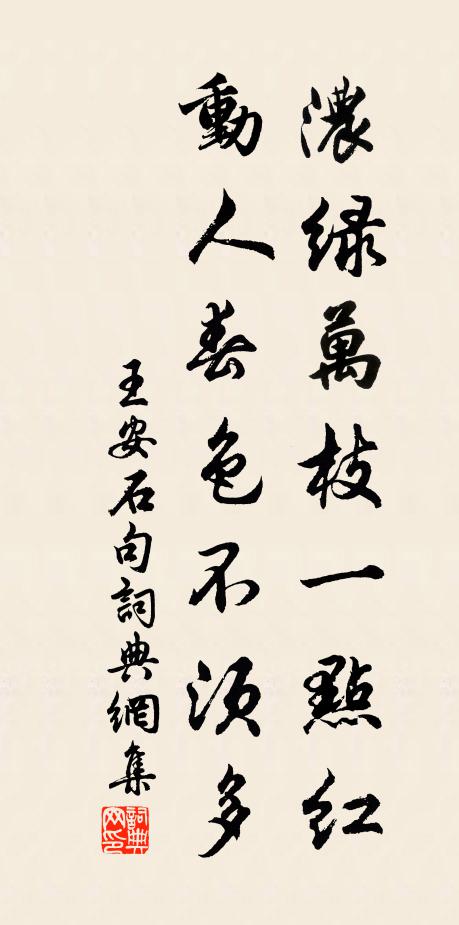 濃綠萬枝一點紅
動人春色不須多
王安石句詞典網集
詞典网印